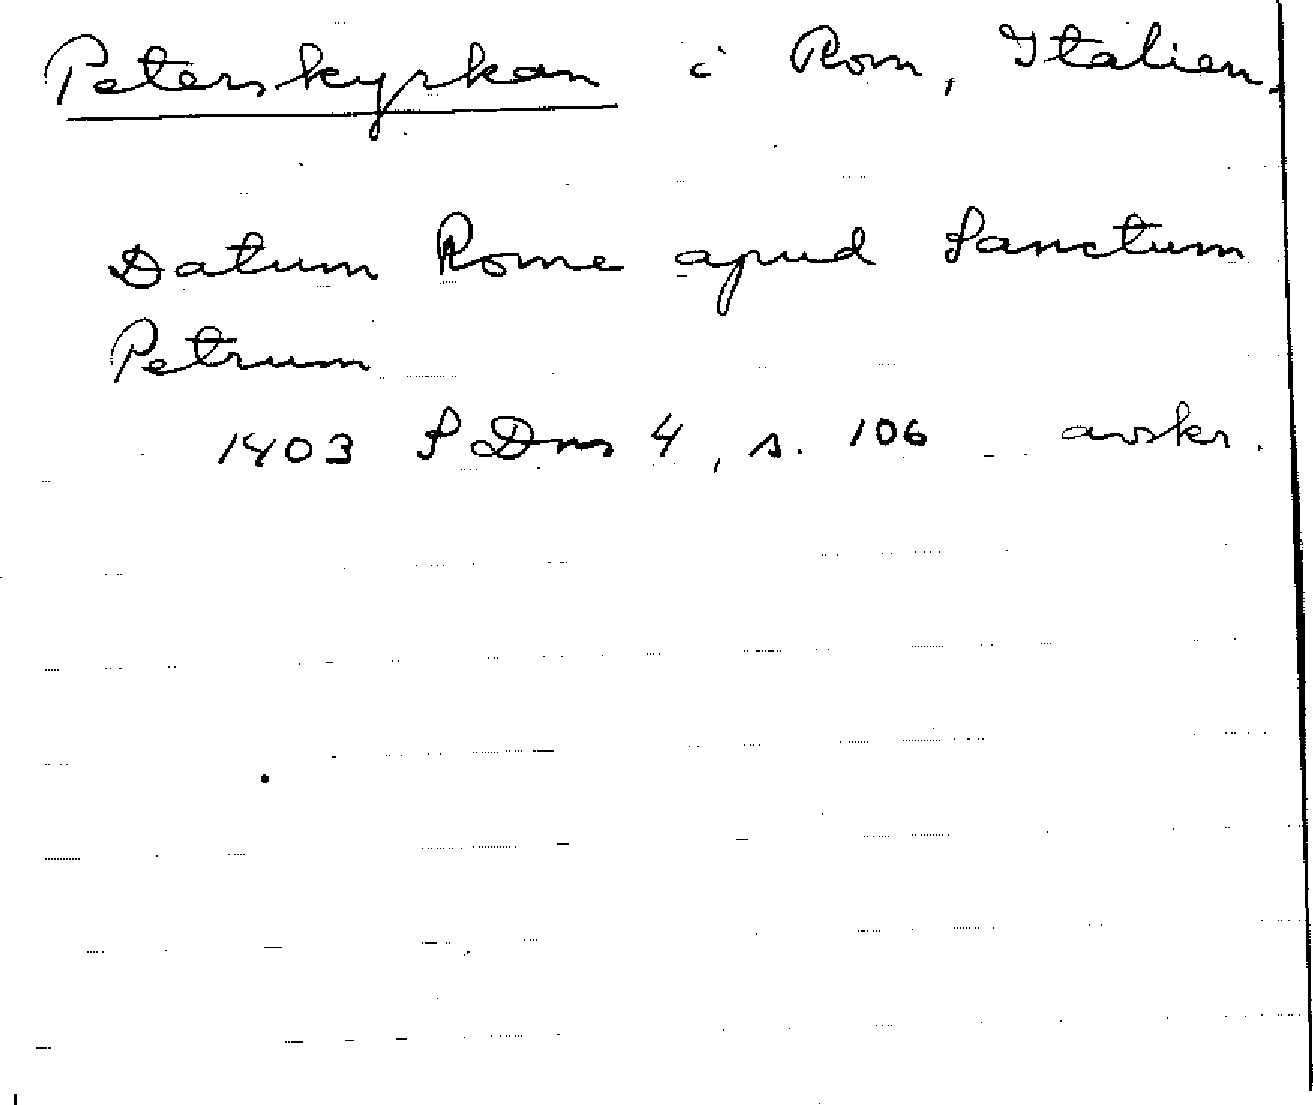 Peterskyrkan i Rom, Italien.
Datum Rome apud Sanctum
Petrum
1403 SDns 4, s. 106 avskr.